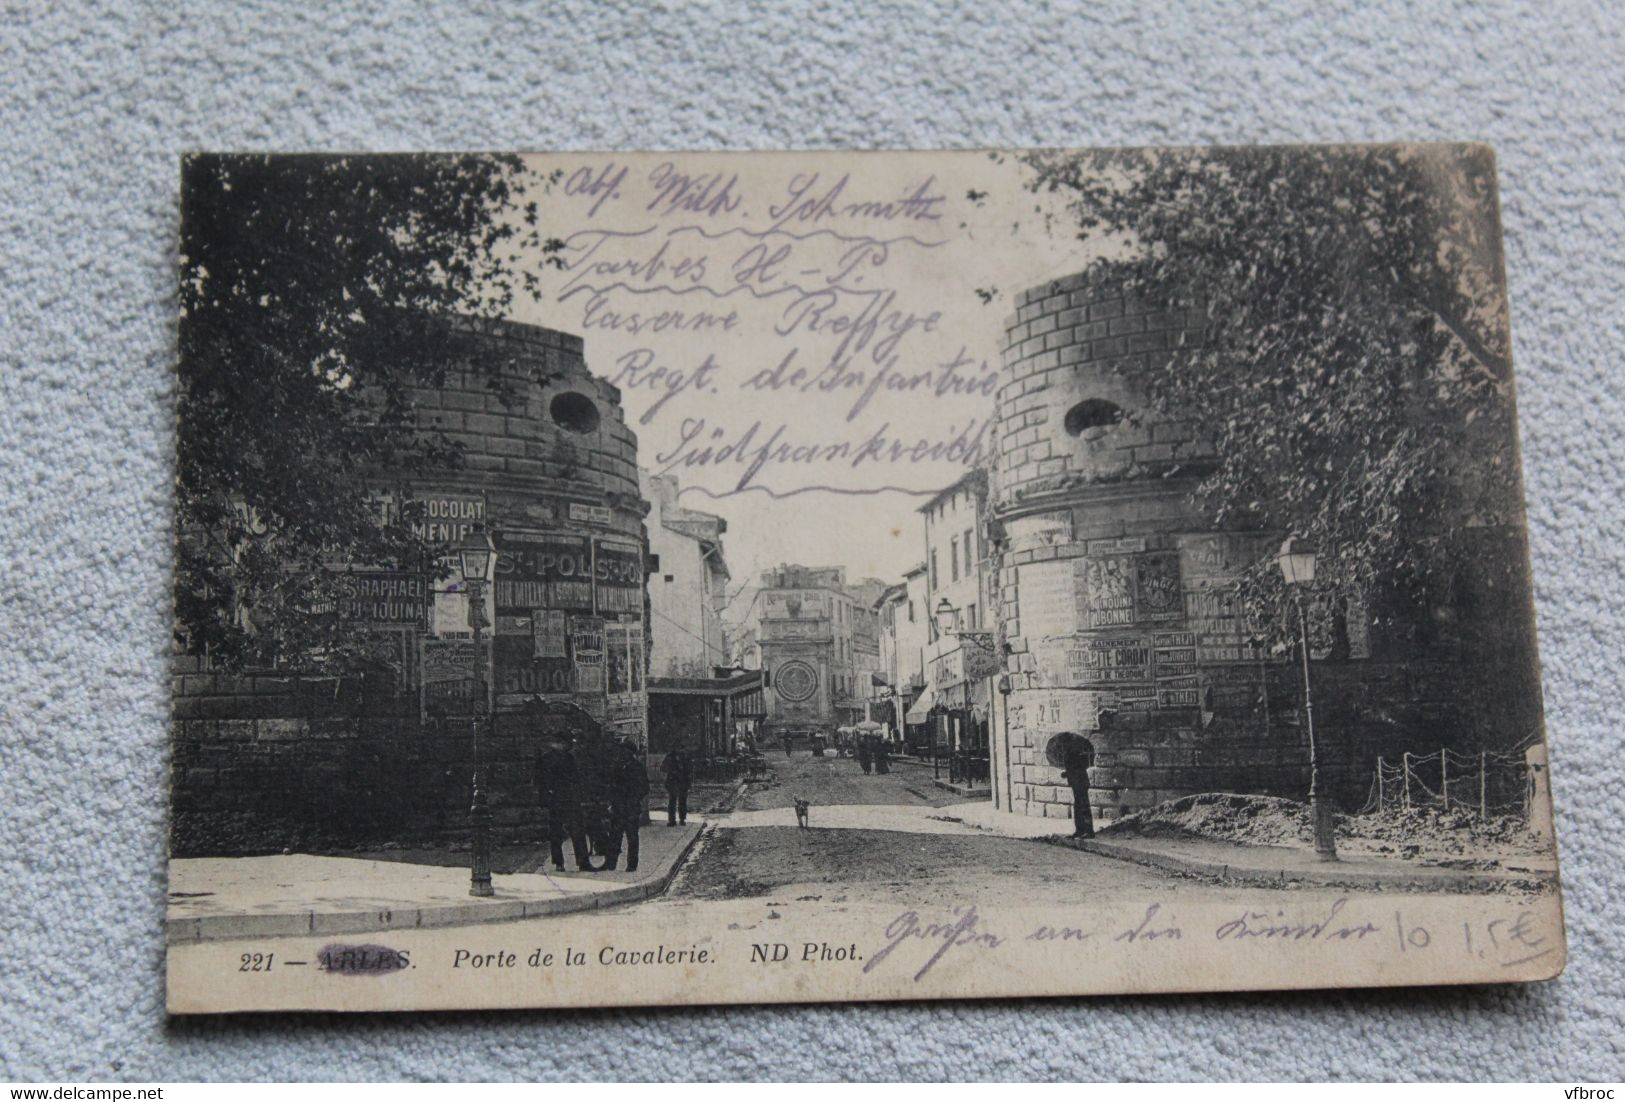 Abs. Wilh. Schmitz
Tarbes H.-P.
Caserne Reffye
Regt. de Infantrie
Südfrankreich
CHOCOLAT
MENIER
ST-POL
ST-POL
RAPHAEL
QUINQUINA
50000
DUBONNET
SINGER
221 — ARLES. Porte de la Cavalerie. ND Phot.
Grüße an die Kinder
10 1.5€
vfbroc